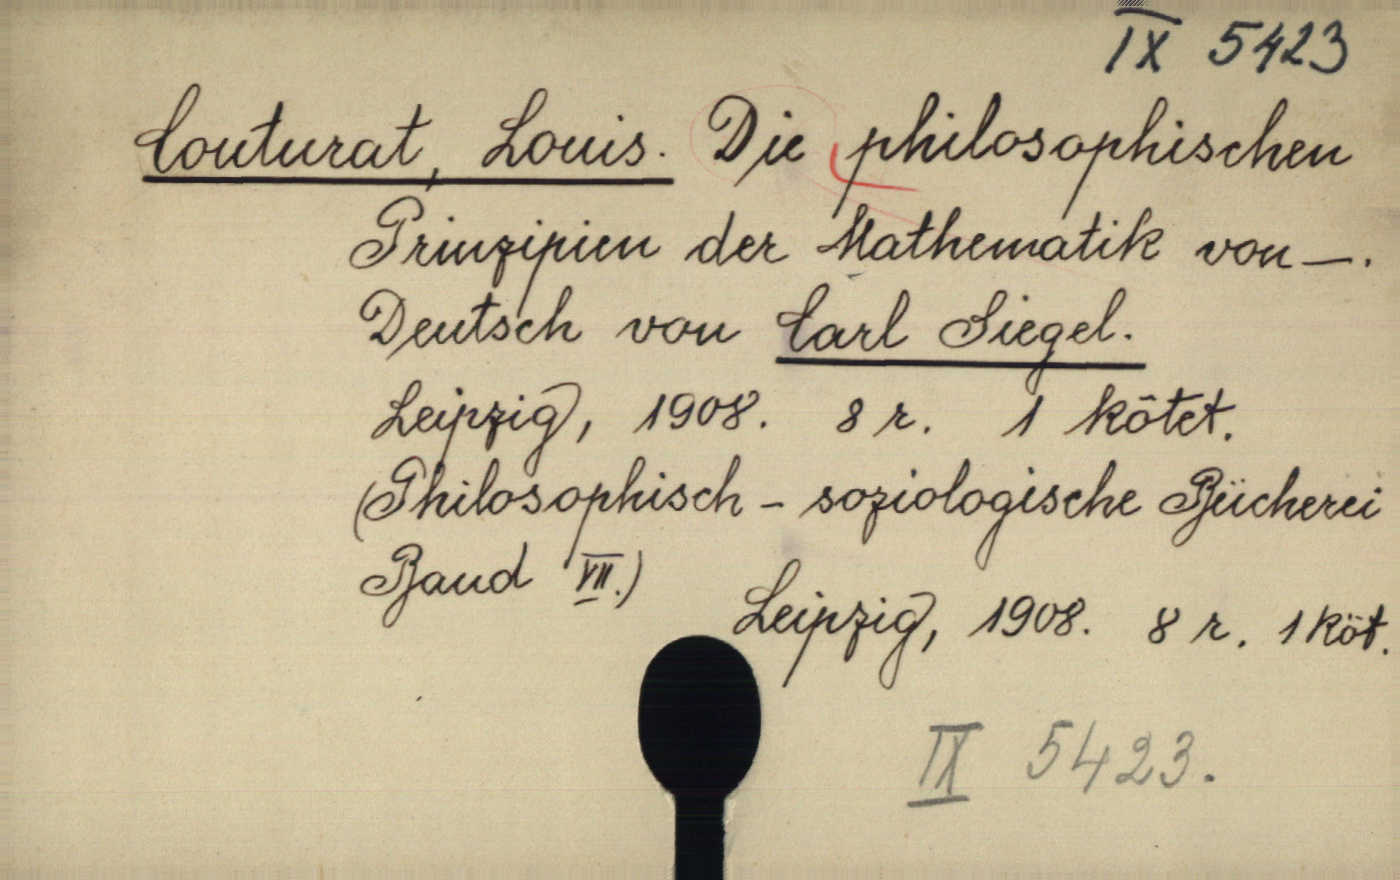 IX 5423
Couturat, Louis. Die philosophischen
Prinzipien der Mathematik von —.
Deutsch von Carl Siegel.
Leipzig, 1908. 8 r. 1 kötet.
(Philosophisch - soziologische Bücherei
Band VII.)
Leipzig, 1908. 8 r. 1 köt.
IX 5423.